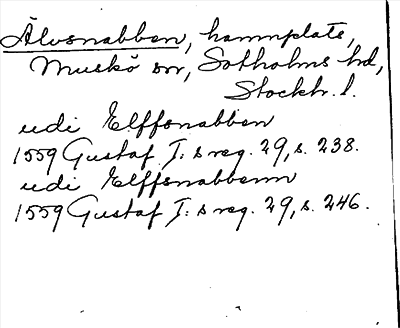 Älvsnabben, hamnplats,
Muskö sn, Sotholms hd,
Stockh. l.
udi Elffsnabben
1559 Gustaf I:s reg. 29, s. 238.
udi Elffsnabbenn
1559 Gustaf I:s reg. 29, s. 246.